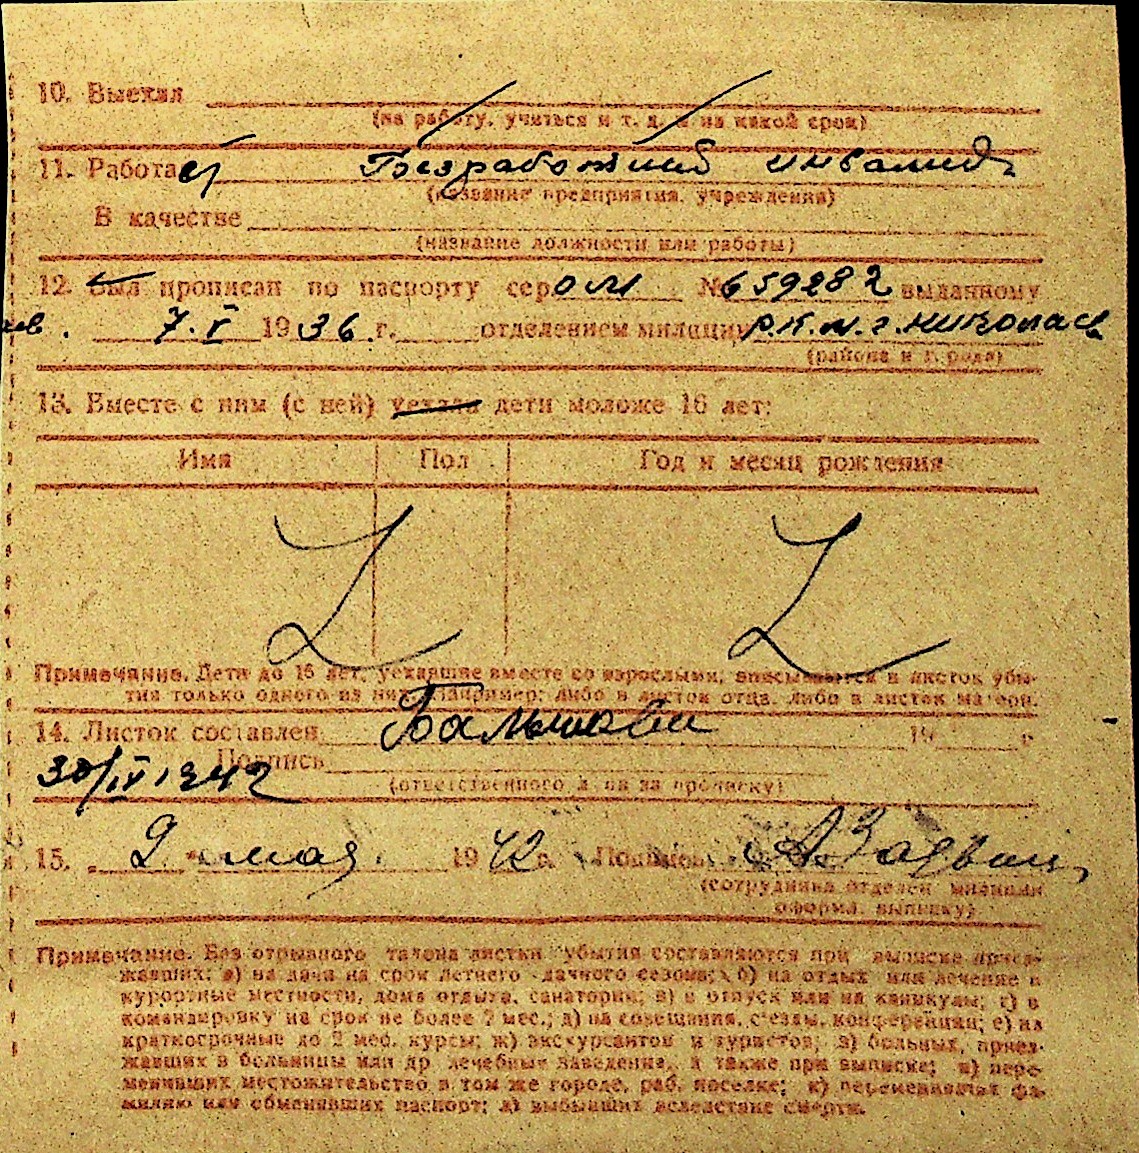 10. Выехал
(на работу, учиться и т. д. и на какой срок)
11. Работает Безработный инвалид
(название предприятия, учреждения)
В качестве
(название должности или работы)
12. Был прописан по паспорту сер. ОМ № 659282 выданному
7.V 1936 г. отделением милиции Р.К.М. г. Николаев.
(района и города)
13. Вместе с ним (с ней) уехали дети моложе 16 лет:
Имя Пол Год и месяц рождения
Примечание. Дети до 16 лет, уехавшие вместе со взрослыми, вписываются в листок убы-
тия только одного из них. Например: либо в листок отца, либо в листок матери.
14. Листок составлен 19 г.
30/IV 1942 Подпись
(ответственного л-ца за прописку)
15. „2“ мая 1942 г. Подпись
(сотрудника отделен. милиции
оформ. выписку)
Примечание. Без отрывного талона листки убытия составляются при выписке приез-
жавших: а) на дачи на срок летнего - дачного сезона; б) на отдых или лечение в
курортные местности, дома отдыха, санатории; в) в отпуск или на каникулы; г) в
командировку на срок не более 2 мес.; д) на совещания, съезды, конференции; е) на
краткосрочные до 2 мес. курсы; ж) экскурсантов и туристов; з) больных, приез-
жавших в больницы или др. лечебные заведения, а также при выписке; и) пере-
менивших местожительство в том же городе, раб. поселке; к) переменивших фа-
милию или обменявших паспорт; л) выбывших вследствие смерти.